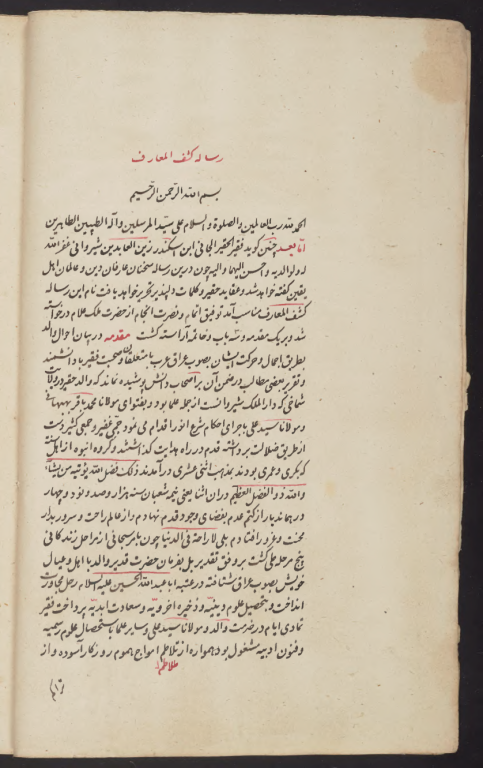 رساله کشف المعارف
بسم الله الرحمن الرحیم
الحمد لله رب العالمین والصلوة والسلام علی سید المرسلین وآله الطیبین الطاهرین
اما بعد چنین کوید فقیر الحقیر الجانی ابن اسکندر زین العابدین شیروانی غفر الله
له ولوالدیه و احسن الیهما والیه چون درین رساله سخنان عارفان دین و عالمان اهل
یقین کفته خواهد شد و عقاید حقیر و کلمات دلپذیر تحریر خواهد یافت نام این رساله
کشف المعارف مناسب آمد توفیق اتمام و نصرت انجام از حضرت ملک علام درخواسته
شد و بر یک مقدمه و سه باب و خاتمه آراسته کشت مقدمه در بیان احوال والد
بطریق اجمال و حرکت ایشان بصوب عراق عرب با متعلقان و صحبت فقیر با دانشمند
و تقریر بعضی مطالب در ضمن آن بر اصحاب دانش پوشیده نماند که والد حقیر در ولایت
شماخی که دار الملک شیروانست از جمله علما بود و بفتوای مولانا محمد باقر بهبهانی
و مولانا سید علی باجرای احکام شرع انور اقدام می نمود جمی غفیر و جمعی کثیر دست
از طریق ضلالت برداشته قدم در راه هدایت کذاشتند و کروه انبوه از اهل سنت
که بکری و عمری بودند بمذهب اثنی عشری در آمدند ذلک فضل الله یؤتیه من یشاء
والله ذو الفضل العظیم در آن اثنا یعنی نیمه شعبان سنه هزار و صد و نود و چهار
در همان دیار از کتم عدم بفضای وجود قدم نهادم و از عالم راحت و سرور بدار
محنت و غرور افتادم بلی لا راحة فی الدنیا چون بامر سبحانی از مراحل زندکانی
پنج مرحله طی کشت بر وفق تقدیر بل بفرمان حضرت قدیر والد با اهل و عیال
خویش بصوب عراق شتافته در عتبه ابا عبد الله الحسین علیه السلام رحل مجاورت
انداخت و بتحصیل علوم دینیه و ذخیره اخرویه و سعادت ابدیه پرداخت فقیر
تمادی ایام در خدمت والد و مولانا سید علی و سایر علما باستحصال علوم رسمیه
و فنون ادبیه مشغول بود همواره از تلاطم امواج هموم روزکار آسوده و از